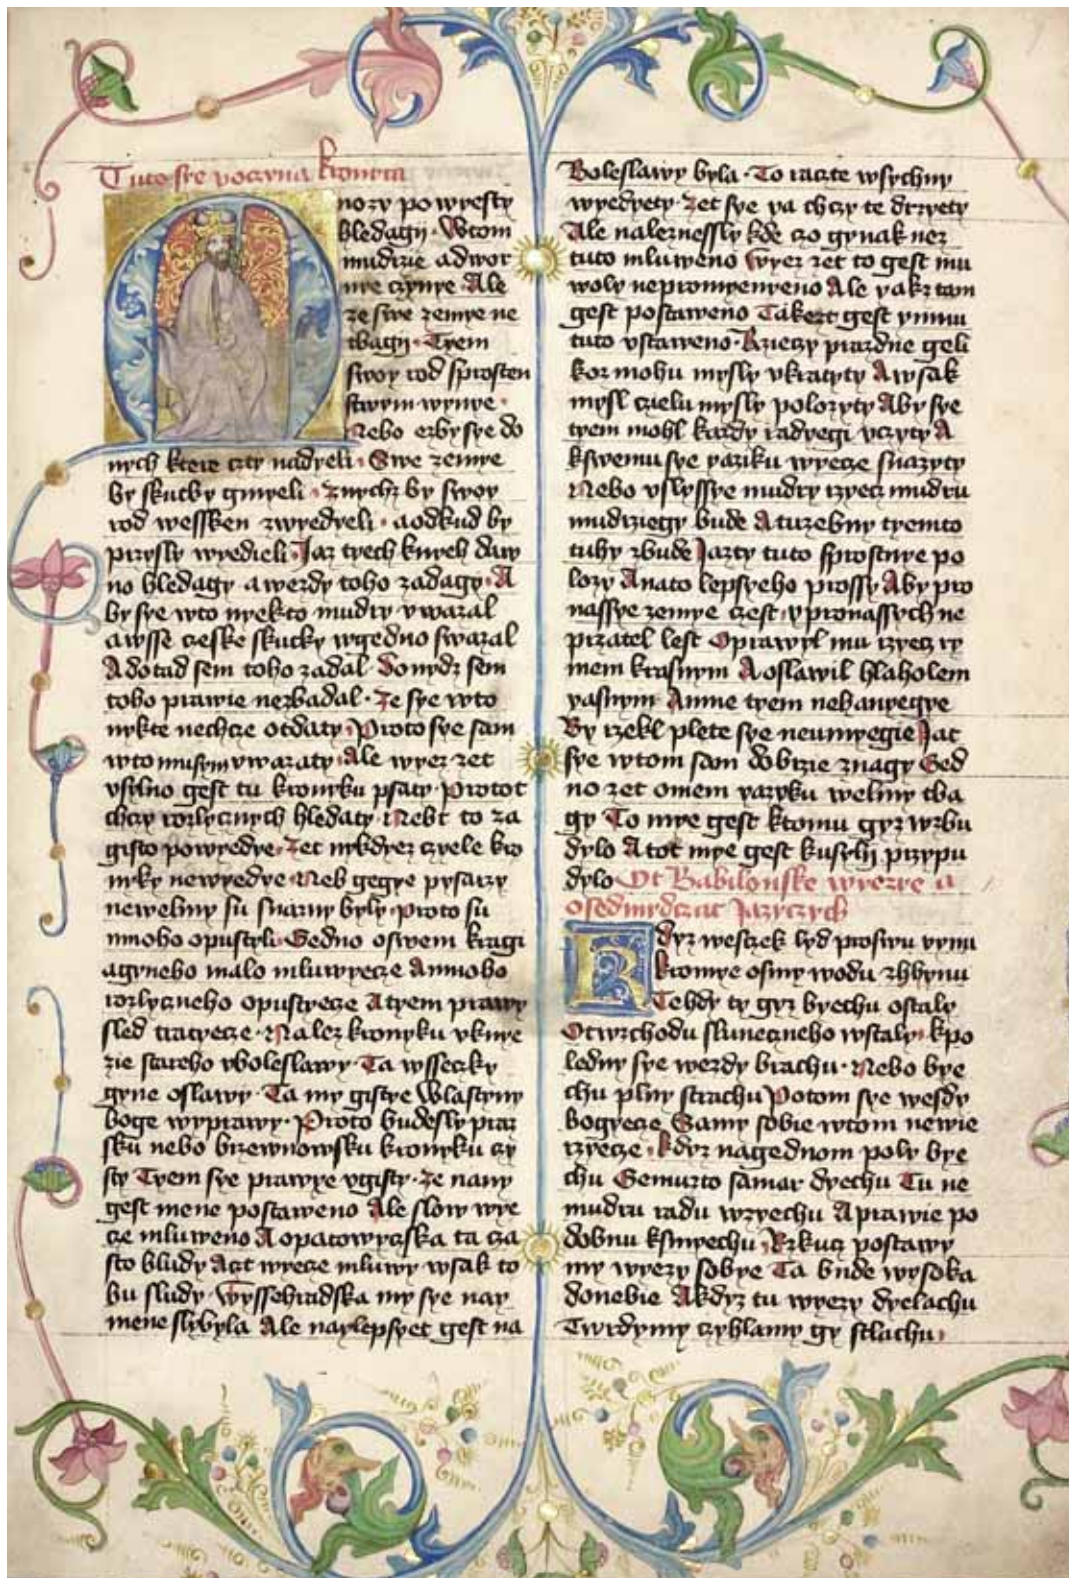 Tuto sye poczyna kronyka
nozy powyesty
hledagy · Wtom
mudrzie adwor
nye czynye Ale
ze swe zemye ne
tbagy · Tyem
swoy rod sprosten
stwym wynye ·
Nebo ezbysye do
nych ktere czty nadyeli · Swe zemye
by skutky gmyeli · znychz by swoy
rod wessken zwyedyeli · aodkud by
przysly wyedieli · Jaz tyech knyeh daw
no hledagy awezdy toho zadagy · A
by sye wto nyekto mudry vwazal
awsse czeske skutky wgedno swazal
Adotad sem toho zadal Donydz sem
toho prawie nezbadal · Ze sye wto
nykte nechcze otdaty · Proto sye sam
wto musym vwazaty · Ale wyez zet
vsylno gest tu kronyku psaty · Protot
chczy rozlycznych hledaty · Nebt to za
gisto powyedye · Zet nykdyez czyele kro
nyky newyedye · Neb gegye pysarzy
newelmy su snazny byly · Proto su
mnoho opustyli · Gedno oswem kragi
agyneho malo mluwyecze Amnoho
rozlyczneho opustyecze Atyem prawy
sled tratyecze · Nalez kronyku vknye
zie stareho wboleslawy · Ta wsseczky
gyne oslawy · Ta my gistye Wlastyny
boge wyprawy · Proto budesly praz
sku nebo brzewnowsku kronyku czy
sty Tyem sye prawye vgisty · Ze nany
gest mene postaweno Ale slow wye
cze mluweno Aopatowyczska ta cza
sto bludy Aczt wyecze mluwy wsak to
bu sludy · Wyssehradska my sye nay
mene slybyla Ale naylepsyet gest na
Boleslawy byla · To raczte wsychny
wyedyety · Zet sye ya chczy te drzyety
Ale naleznessly kde czo gynak nez
tuto mluweno Wyez zet to gest mu
woly nepromyenyeno Ale yakz tam
gest postaweno Takezt gest ynmu
tuto vstaweno · Rzieczy prazdne geli
koz mohu mysly vkratyty Awsak
mysl czielu mysly polozyty Aby sye
tyem mohl kazdy radyegi vczyty A
kswemu sye yaziku wyecze snazyty
Nebo vslyssye mudry rzyecz mudru
mudrziegy bude Atuzebny tyemto
tuhy zbude Jazty tuto sprostnye po
lozy Anato lepsyeho prossy Aby pro
nassye zemye czest y pronassych ne
przatel lest Oprawyl mu rzyecz ry
mem krasnym Aoslawil hlaholem
yasnym Amne tyem nehanyegye
By rzekl plete sye neumyegie Jat
sye wtom sam dobrzie znagy Ged
no zet omem yazyku welmy tba
gy To mye gest ktomu gyz wzbu
dylo Atot mye gest kusyli przypu
dylo Ot Babilonske wyezye a
osedmydczat Jazyczych
Kdyz weszczek lyd proswu vynu
kromye osmy wodu zhbynu
Tehdy ty gyz byechu ostaly
Otwzchodu slunecznego wstaly · kpo
ledny sye wezdy brachu · Nebo bye
chu plny strachu Potom sye wesdy
bogyecze Samy sobie wtom newie
rzyecze · kdyz nagednom poly bye
chu Gemuzto samar dyechu Tu ne
mudru radu wzyechu Aprawie po
dobnu ksmyechu · Rzkucz postawy
my wyezy sobye Ta bude wysoka
donebie Akdyz tu wyezy dyelachu
Twrdymy czyhlamy gy stlachu ·